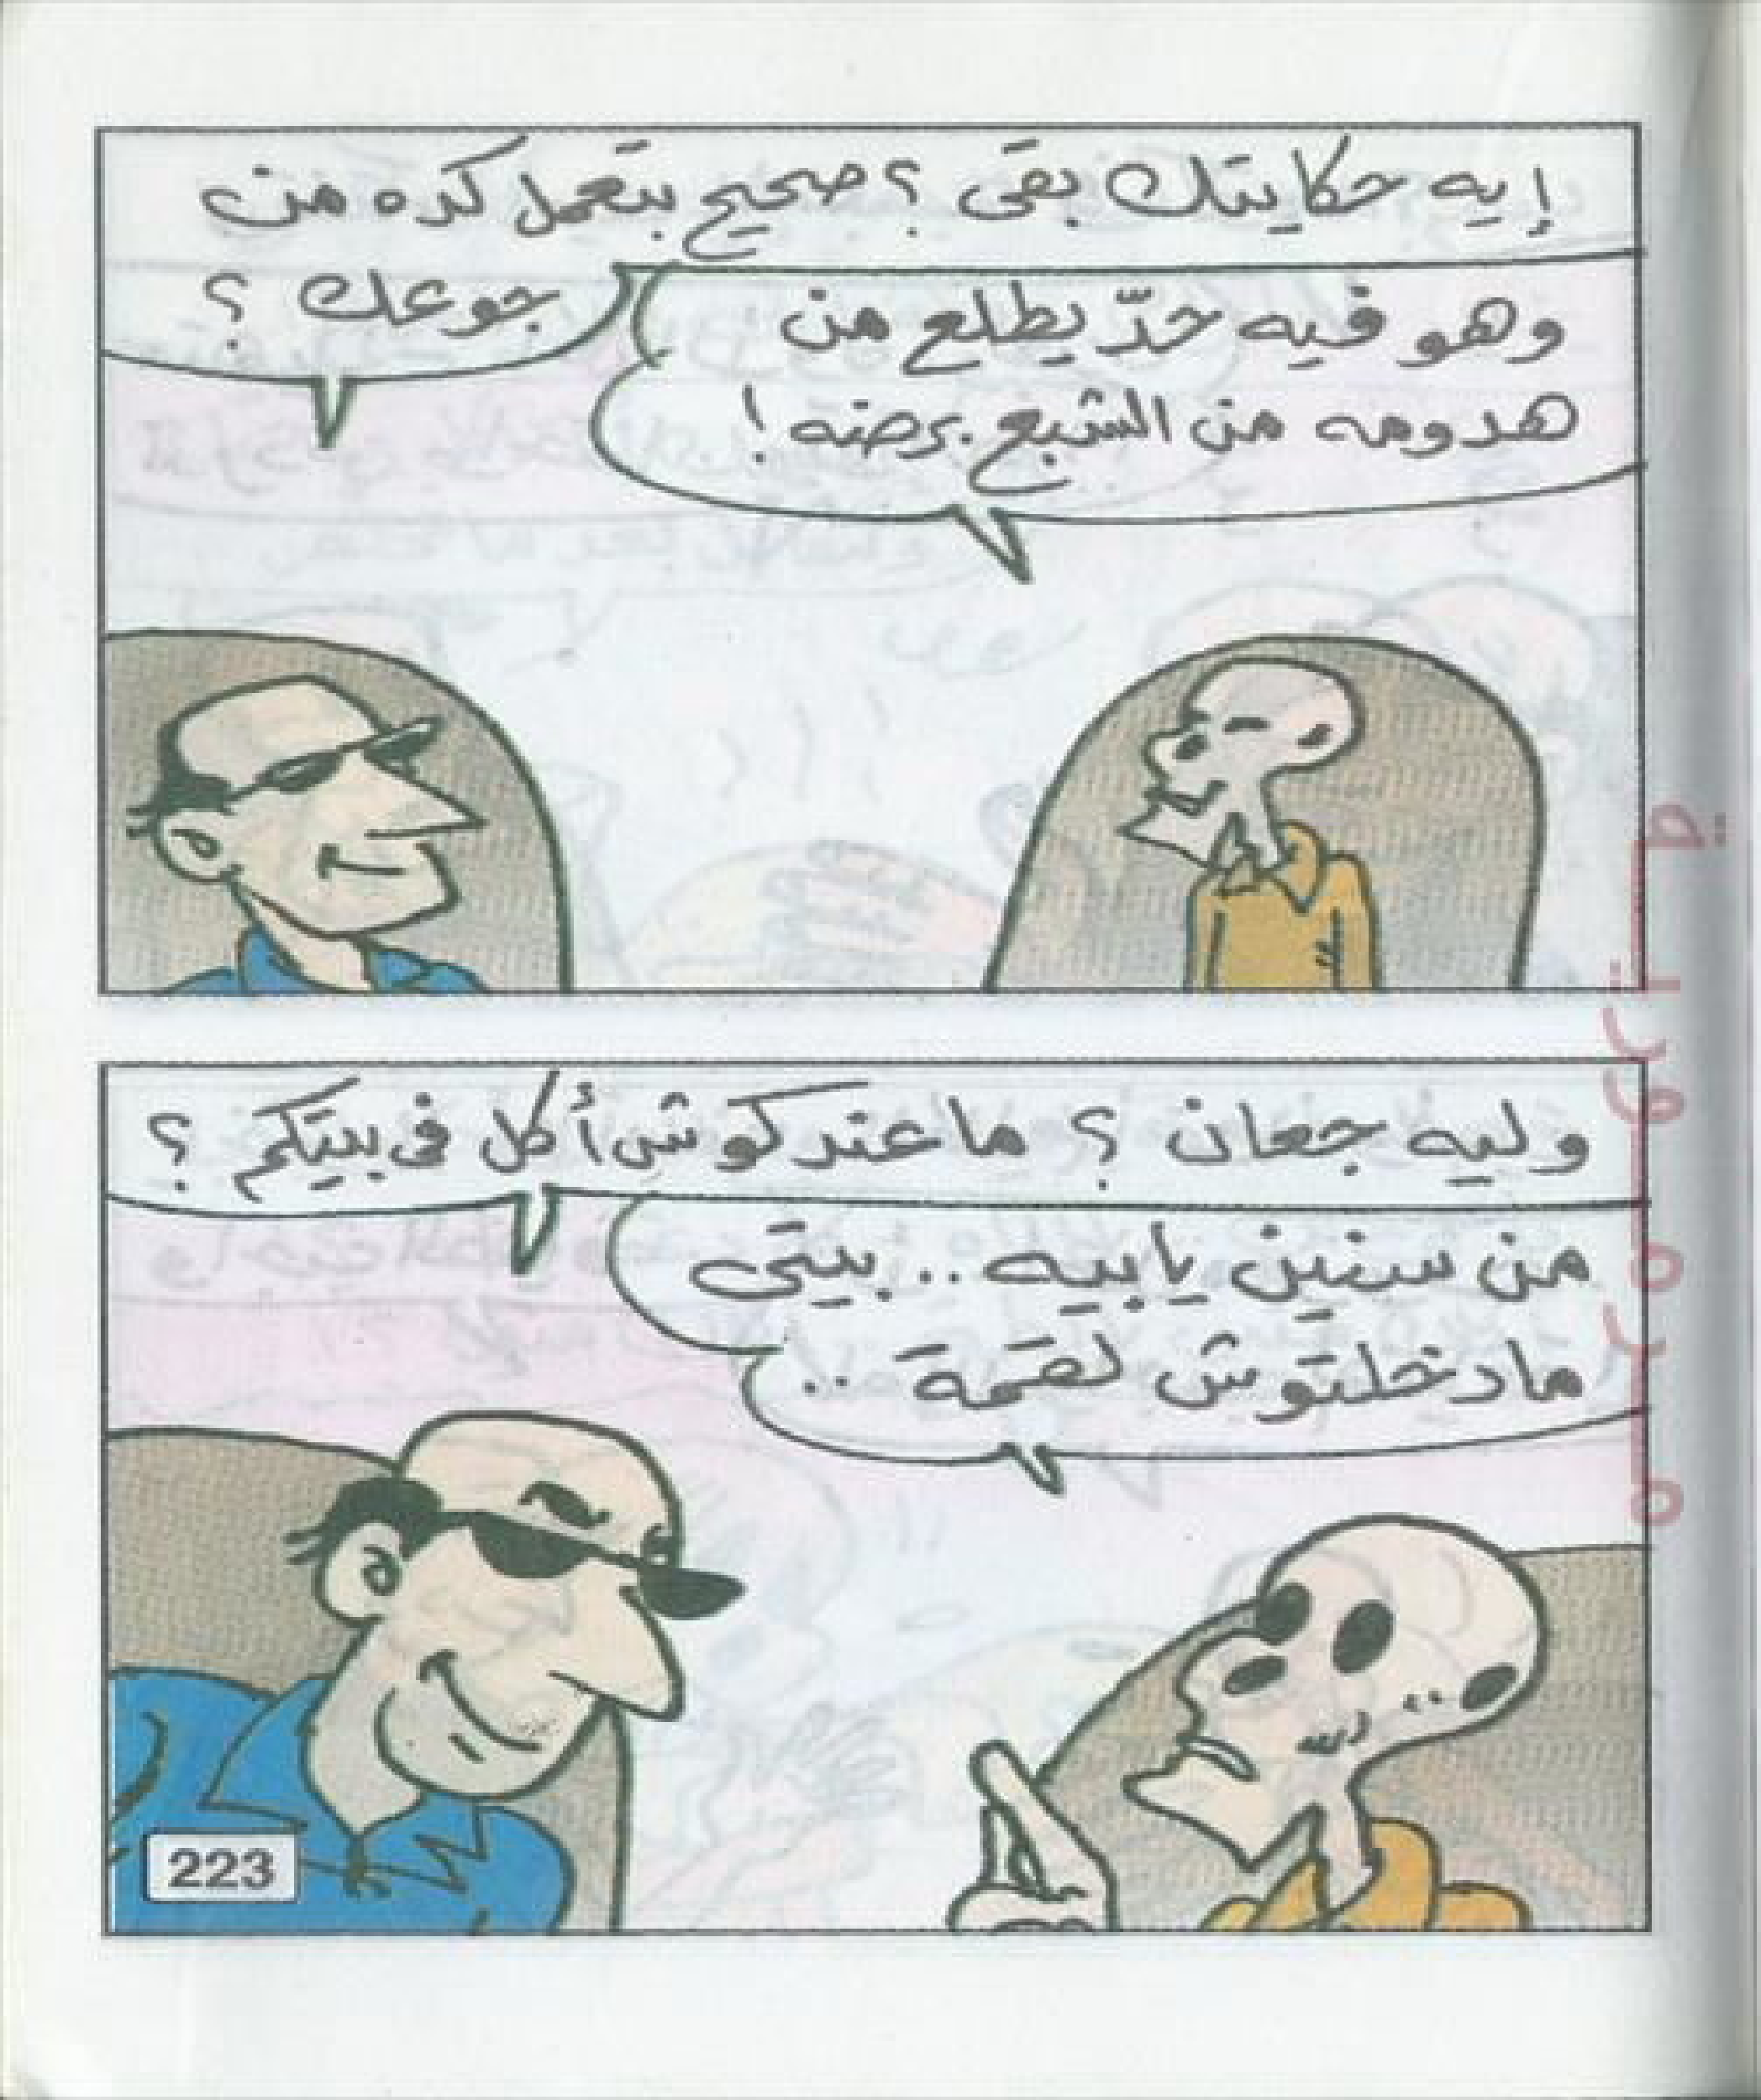 إيه حكايتك بقى ؟ صحيح بتعمل كده من
جوعك ؟
وهو فيه حدّ يطلع من
هدومه من الشبع برضه !
وليه جعان ؟ ما عندكوش أكل فى بيتكم ؟
من سنين يا بيه .. بيتى
مادخلتوش لقمة ..
223